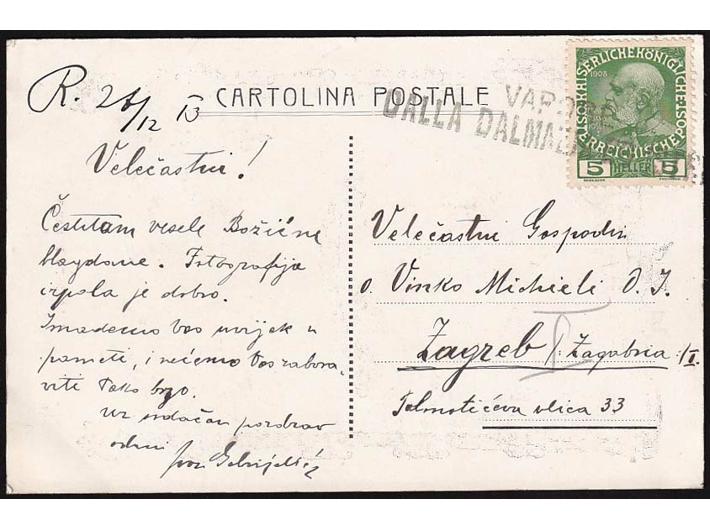 R. 26/12 13
CARTOLINA POSTALE
VAPORE
DALLA DALMAZIA
KAISERLICHE KÖNIGLICHE ÖSTERREICHISCHE POST
1908
5 HELLER 5
Velečastni!
Čestitam vesele Božićne
blagdane. Fotografija
ispala je dobro.
Imademo Vas uvijek u
pameti, i nećemo Vas zabora-
viti tako brzo.
Uz srdačan pozdrav
odani
Velečastni Gospodin
o. Vinko Michieli D. I.
Zagreb /: Zagabria /I
Palmotićeva ulica 33